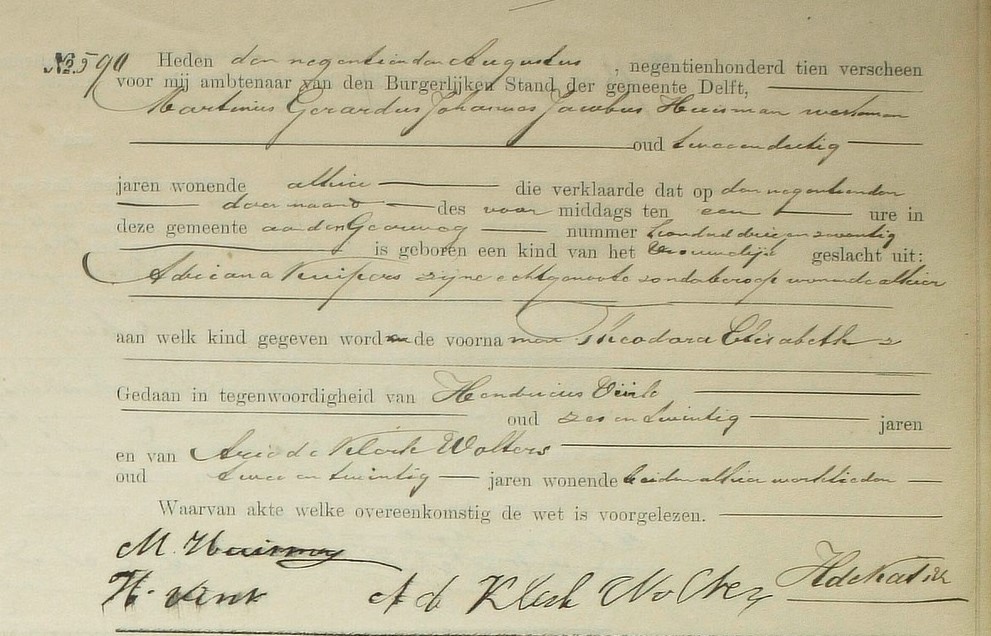 No. 590 Heden den negentienden Augustus, negentienhonderd tien verscheen
voor mij ambtenaar van den Burgerlijken Stand der gemeente Delft,
Martinus Gerardus Johannes Jacobus Huisman werkman
oud tweeendertig
jaren wonende alhier die verklaarde dat op den negentienden
dezer maand des voor middags ten een ure in
deze gemeente aan den Geerweg nummer honderd drie en twintig
is geboren een kind van het vrouwelijk geslacht uit:
Adriana Kuipers zijne echtgenoote zonder beroep wonende alhier
aan welk kind gegeven worden de voornamen Theodora Elisabeth
Gedaan in tegenwoordigheid van Hendricus
oud zes en twintig jaren
en van Arie de Klerk Wolters
oud twee en twintig jaren wonende beiden alhier werklieden
Waarvan akte welke overeenkomstig de wet is voorgelezen.
M. Huisman
H. A d Klerk Wolters